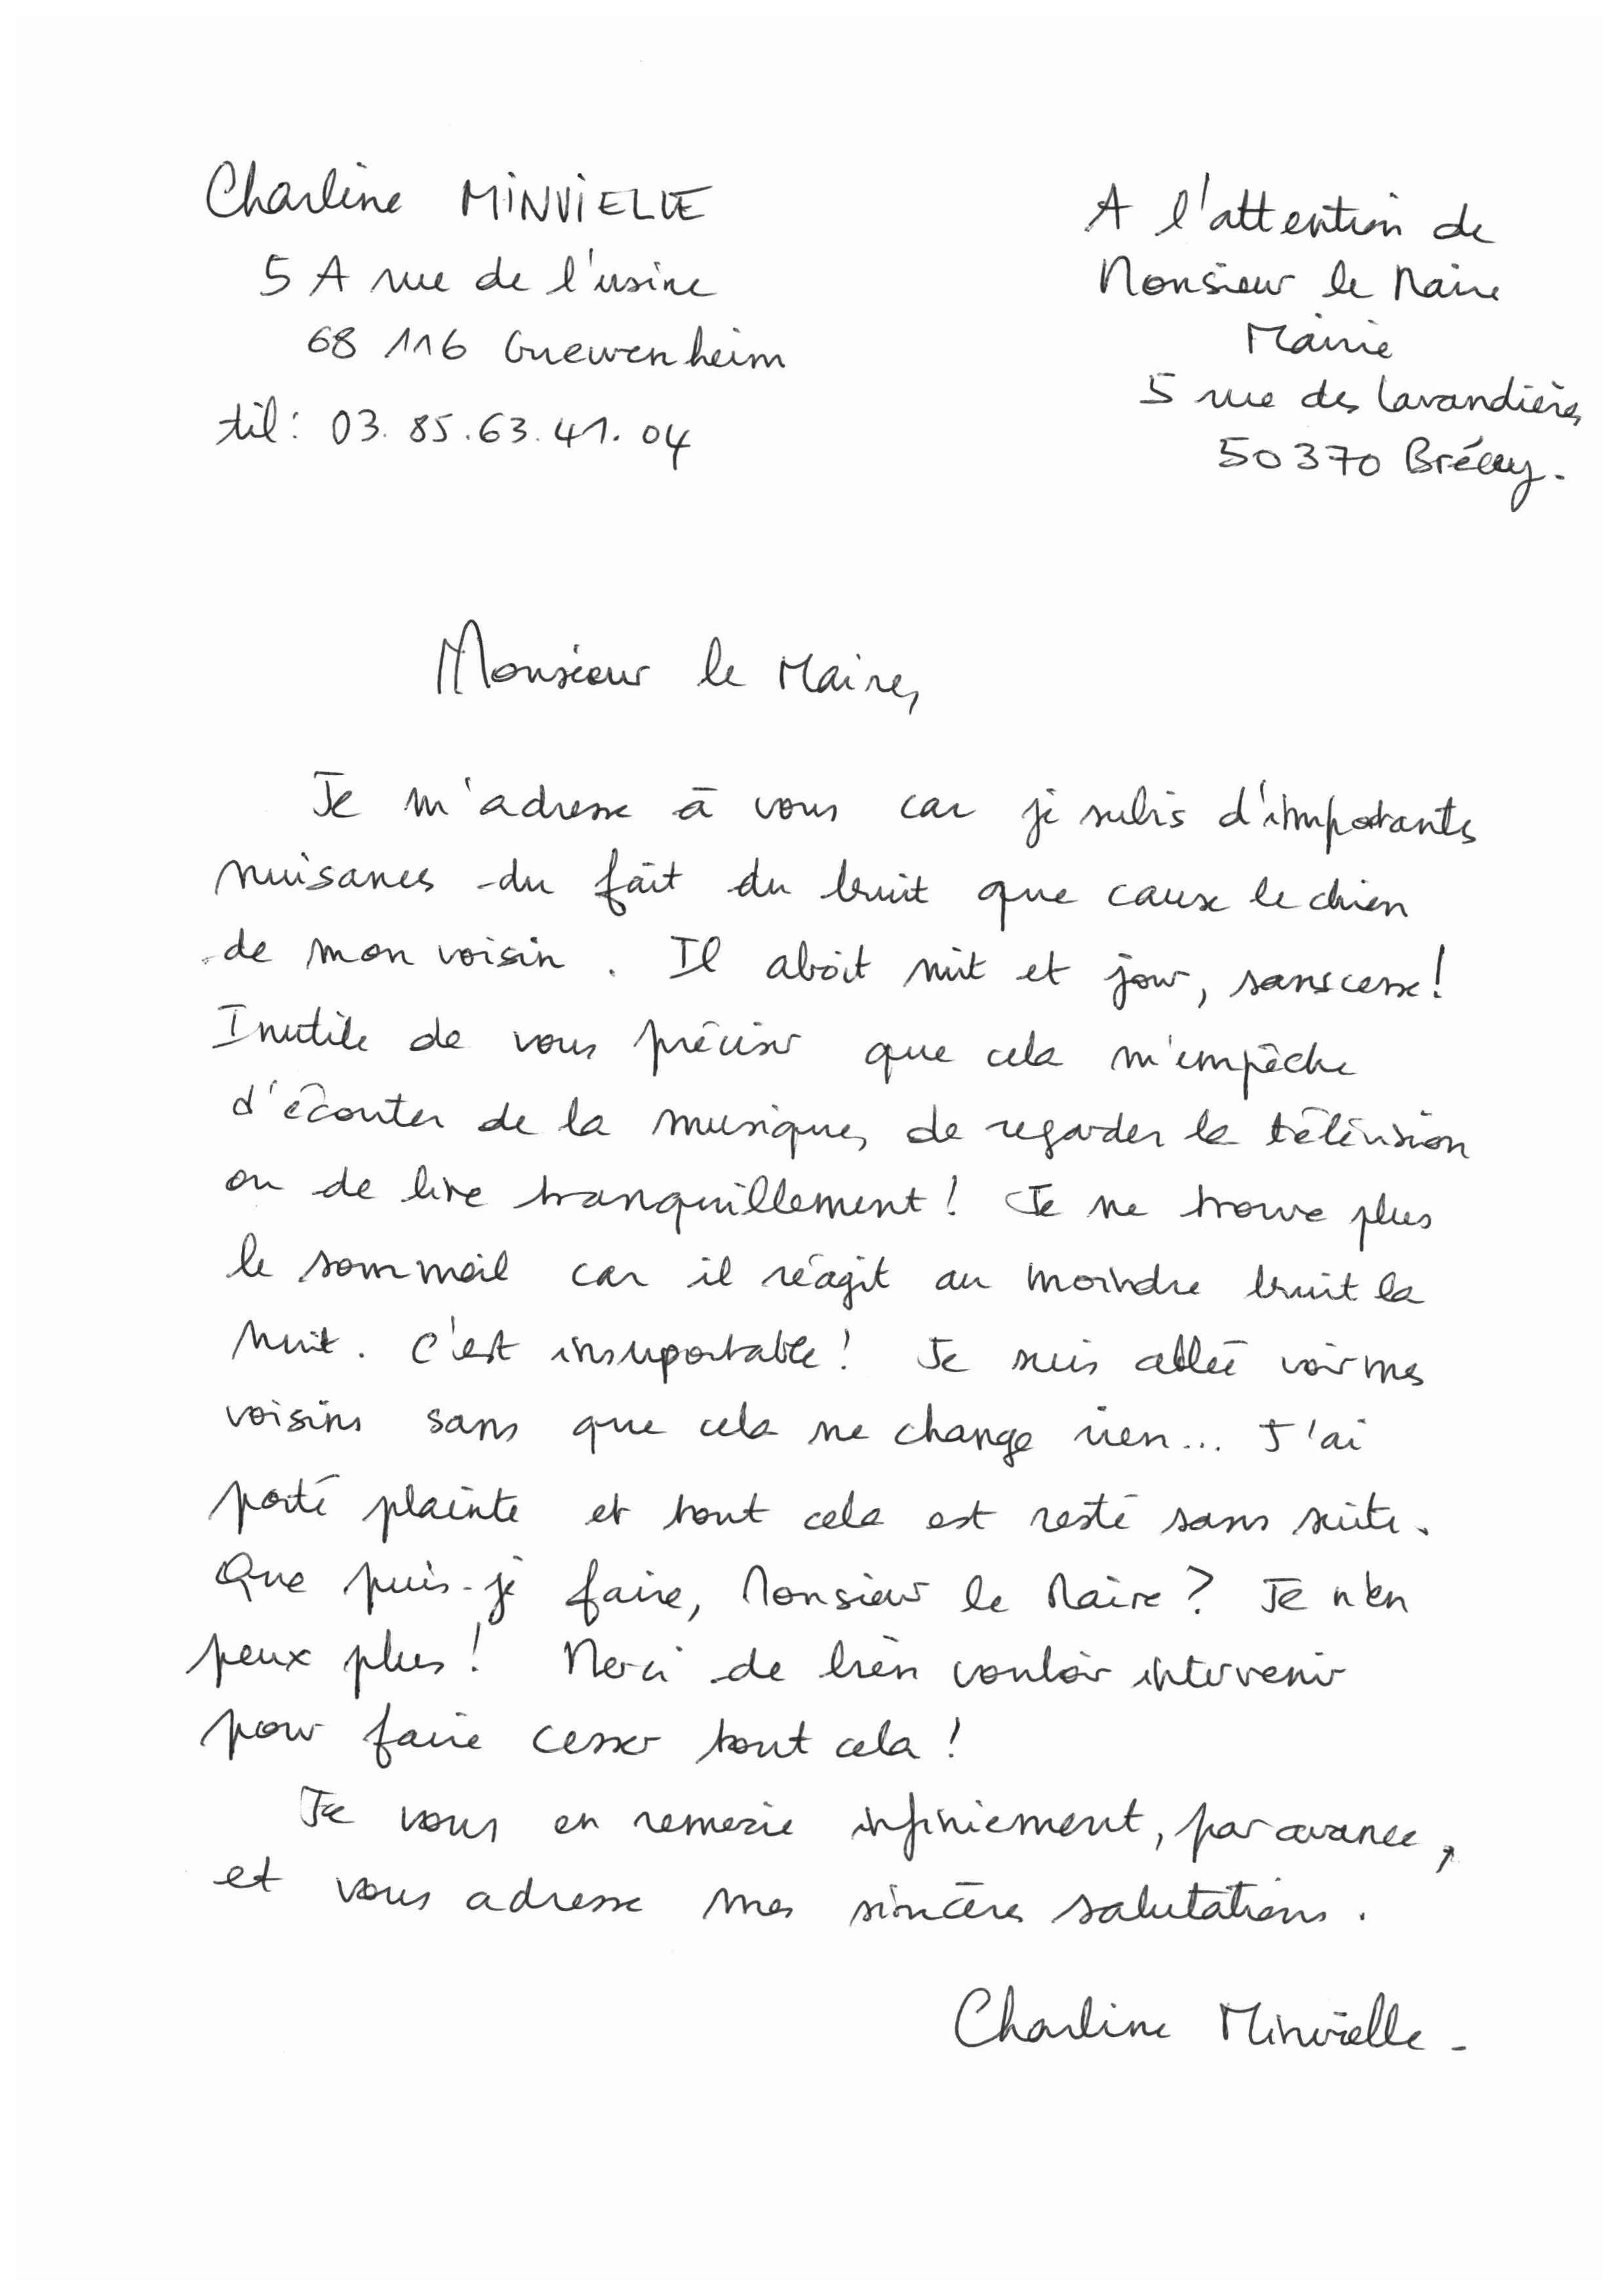 Charline MINVIELLE
5 A rue de l'usine
68 116 Guewenheim
tél: 03.85.63.41.04
A l'attention de
Monsieur le Maire
Mairie
5 rue des Lavandières
50370 Brécey.
Monsieur le Maire,
Je m'adresse à vous car je subis d'importants
nuisances du fait du bruit que cause le chien
de mon voisin. Il aboit nuit et jour, sans cesse!
Inutile de vous préciser que cela m'empêche
d'écouter de la musique, de regarder la télévision
ou de lire tranquillement! Je ne trouve plus
le sommeil car il réagit au moindre bruit la
nuit. C'est insuportable! Je suis allée voir mes
voisins sans que cela ne change rien... J'ai
porté plainte et tout cela est resté sans suite.
Que puis-je faire, Monsieur le Maire? Je n'en
peux plus! Merci de bien vouloir intervenir
pour faire cesser tout cela!
Je vous en remercie infiniement, par avance,
et vous adresse mes sincères salutations.
Charline Minvielle.